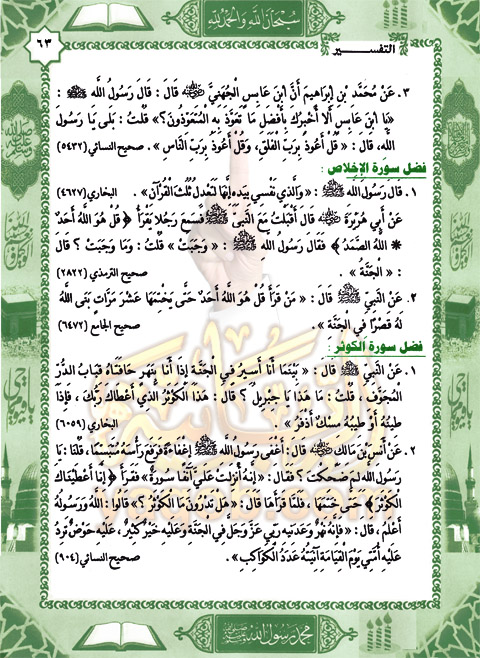 سُبْحَانَ اللَّهِ وَالْحَمْدُ لِلَّهِ
التفسير
٦٣
٣. عَنْ مُحَمَّدِ بْنِ إِبْرَاهِيمَ أَنَّ ابْنَ عَابِسٍ الْجُهَنِيَّ ﷺ قَالَ : قَالَ رَسُولُ اللَّهِ ﷺ :
«يَا ابْنَ عَابِسٍ أَلَا أُخْبِرُكَ بِأَفْضَلِ مَا تَعَوَّذَ بِهِ الْمُتَعَوِّذُونَ؟» قُلْتُ : بَلَى يَا رَسُولَ
اللَّهِ ، قَالَ : « قُلْ أَعُوذُ بِرَبِّ الْفَلَقِ، وَقُلْ أَعُوذُ بِرَبِّ النَّاسِ ». صحيح النسائي (٥٤٣٢)
فضل سورة الإخلاص :
١. قَالَ رَسُولُ اللَّهِ ﷺ : «وَالَّذِي نَفْسِي بِيَدِهِ إِنَّهَا لَتَعْدِلُ ثُلُثَ الْقُرْآنِ». البخاري (٤٦٢٧)
عَنْ أَبِي هُرَيْرَةَ ﷺ قَالَ أَقْبَلْتُ مَعَ النَّبِيِّ ﷺ فَسَمِعَ رَجُلًا يَقْرَأُ ﴿ قُلْ هُوَ اللَّهُ أَحَدٌ
* اللَّهُ الصَّمَدُ ﴾ فَقَالَ رَسُولُ اللَّهِ ﷺ : « وَجَبَتْ » قُلْتُ : وَمَا وَجَبَتْ ؟ قَالَ
: « الْجَنَّةُ » . صحيح الترمذي (٢٨٢٢)
٢. عَنْ النَّبِيِّ ﷺ قَالَ : « مَنْ قَرَأَ قُلْ هُوَ اللَّهُ أَحَدٌ حَتَّى يَخْتِمَهَا عَشْرَ مَرَّاتٍ بَنَى اللَّهُ
لَهُ قَصْرًا فِي الْجَنَّةِ » . صحيح الجامع (٦٤٧٢)
فضل سورة الكوثر :
١. عَنْ النَّبِيِّ ﷺ قَالَ : « بَيْنَمَا أَنَا أَسِيرُ فِي الْجَنَّةِ إِذَا أَنَا بِنَهَرٍ حَافَتَاهُ قِبَابُ الدُّرِّ
الْمُجَوَّفِ ، قُلْتُ : مَا هَذَا يَا جِبْرِيلُ ؟ قَالَ : هَذَا الْكَوْثَرُ الَّذِي أَعْطَاكَ رَبُّكَ ، فَإِذَا
طِينُهُ أَوْ طِيبُهُ مِسْكٌ أَذْفَرُ » . البخاري (٦٠٥٩)
٢. عَنْ أَنَسِ بْنِ مَالِكٍ ﷺ قَالَ : أَغْفَى رَسُولُ اللَّهِ ﷺ إِغْفَاءَةً فَرَفَعَ رَأْسَهُ مُتَبَسِّمًا، قُلْنَا : يَا
رَسُولَ اللَّهِ لِمَ ضَحِكْتَ ؟ فَقَالَ : «إِنَّهُ أُنْزِلَتْ عَلَيَّ آنِفًا سُورَةٌ» فَقَرَأَ ﴿ إِنَّا أَعْطَيْنَاكَ
الْكَوْثَرَ ﴾ حَتَّى خَتَمَهَا ، فَلَمَّا قَرَأَهَا قَالَ : «هَلْ تَدْرُونَ مَا الْكَوْثَرُ ؟» قَالُوا : اللَّهُ وَرَسُولُهُ
أَعْلَمُ ، قَالَ : «فَإِنَّهُ نَهَرٌ وَعَدَنِيهِ رَبِّي عَزَّ وَجَلَّ فِي الْجَنَّةِ وَعَلَيْهِ خَيْرٌ كَثِيرٌ ، عَلَيْهِ حَوْضٌ تَرِدُ
عَلَيْهِ أُمَّتِي يَوْمَ الْقِيَامَةِ آنِيَتُهُ عَدَدُ الْكَوَاكِبِ» . صحيح النسائي (٩٠٤)
محمد رسول الله